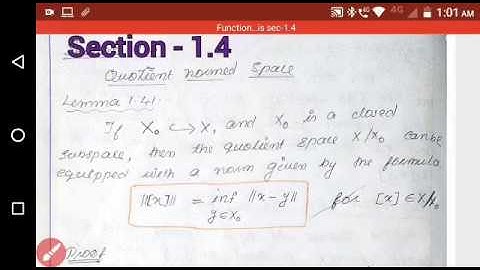 4G 1:01 AM
Function..is sec-1.4
Section - 1.4
Quotient normed Space
Lemma 1.41.
If X₀ ↪ X, and X₀ is a closed
subspace, then the quotient space X/X₀ can be
equipped with a norm given by the formula
‖[x]‖ = inf ‖x - y‖ for [x] ∈ X/X₀
y ∈ X₀
Proof